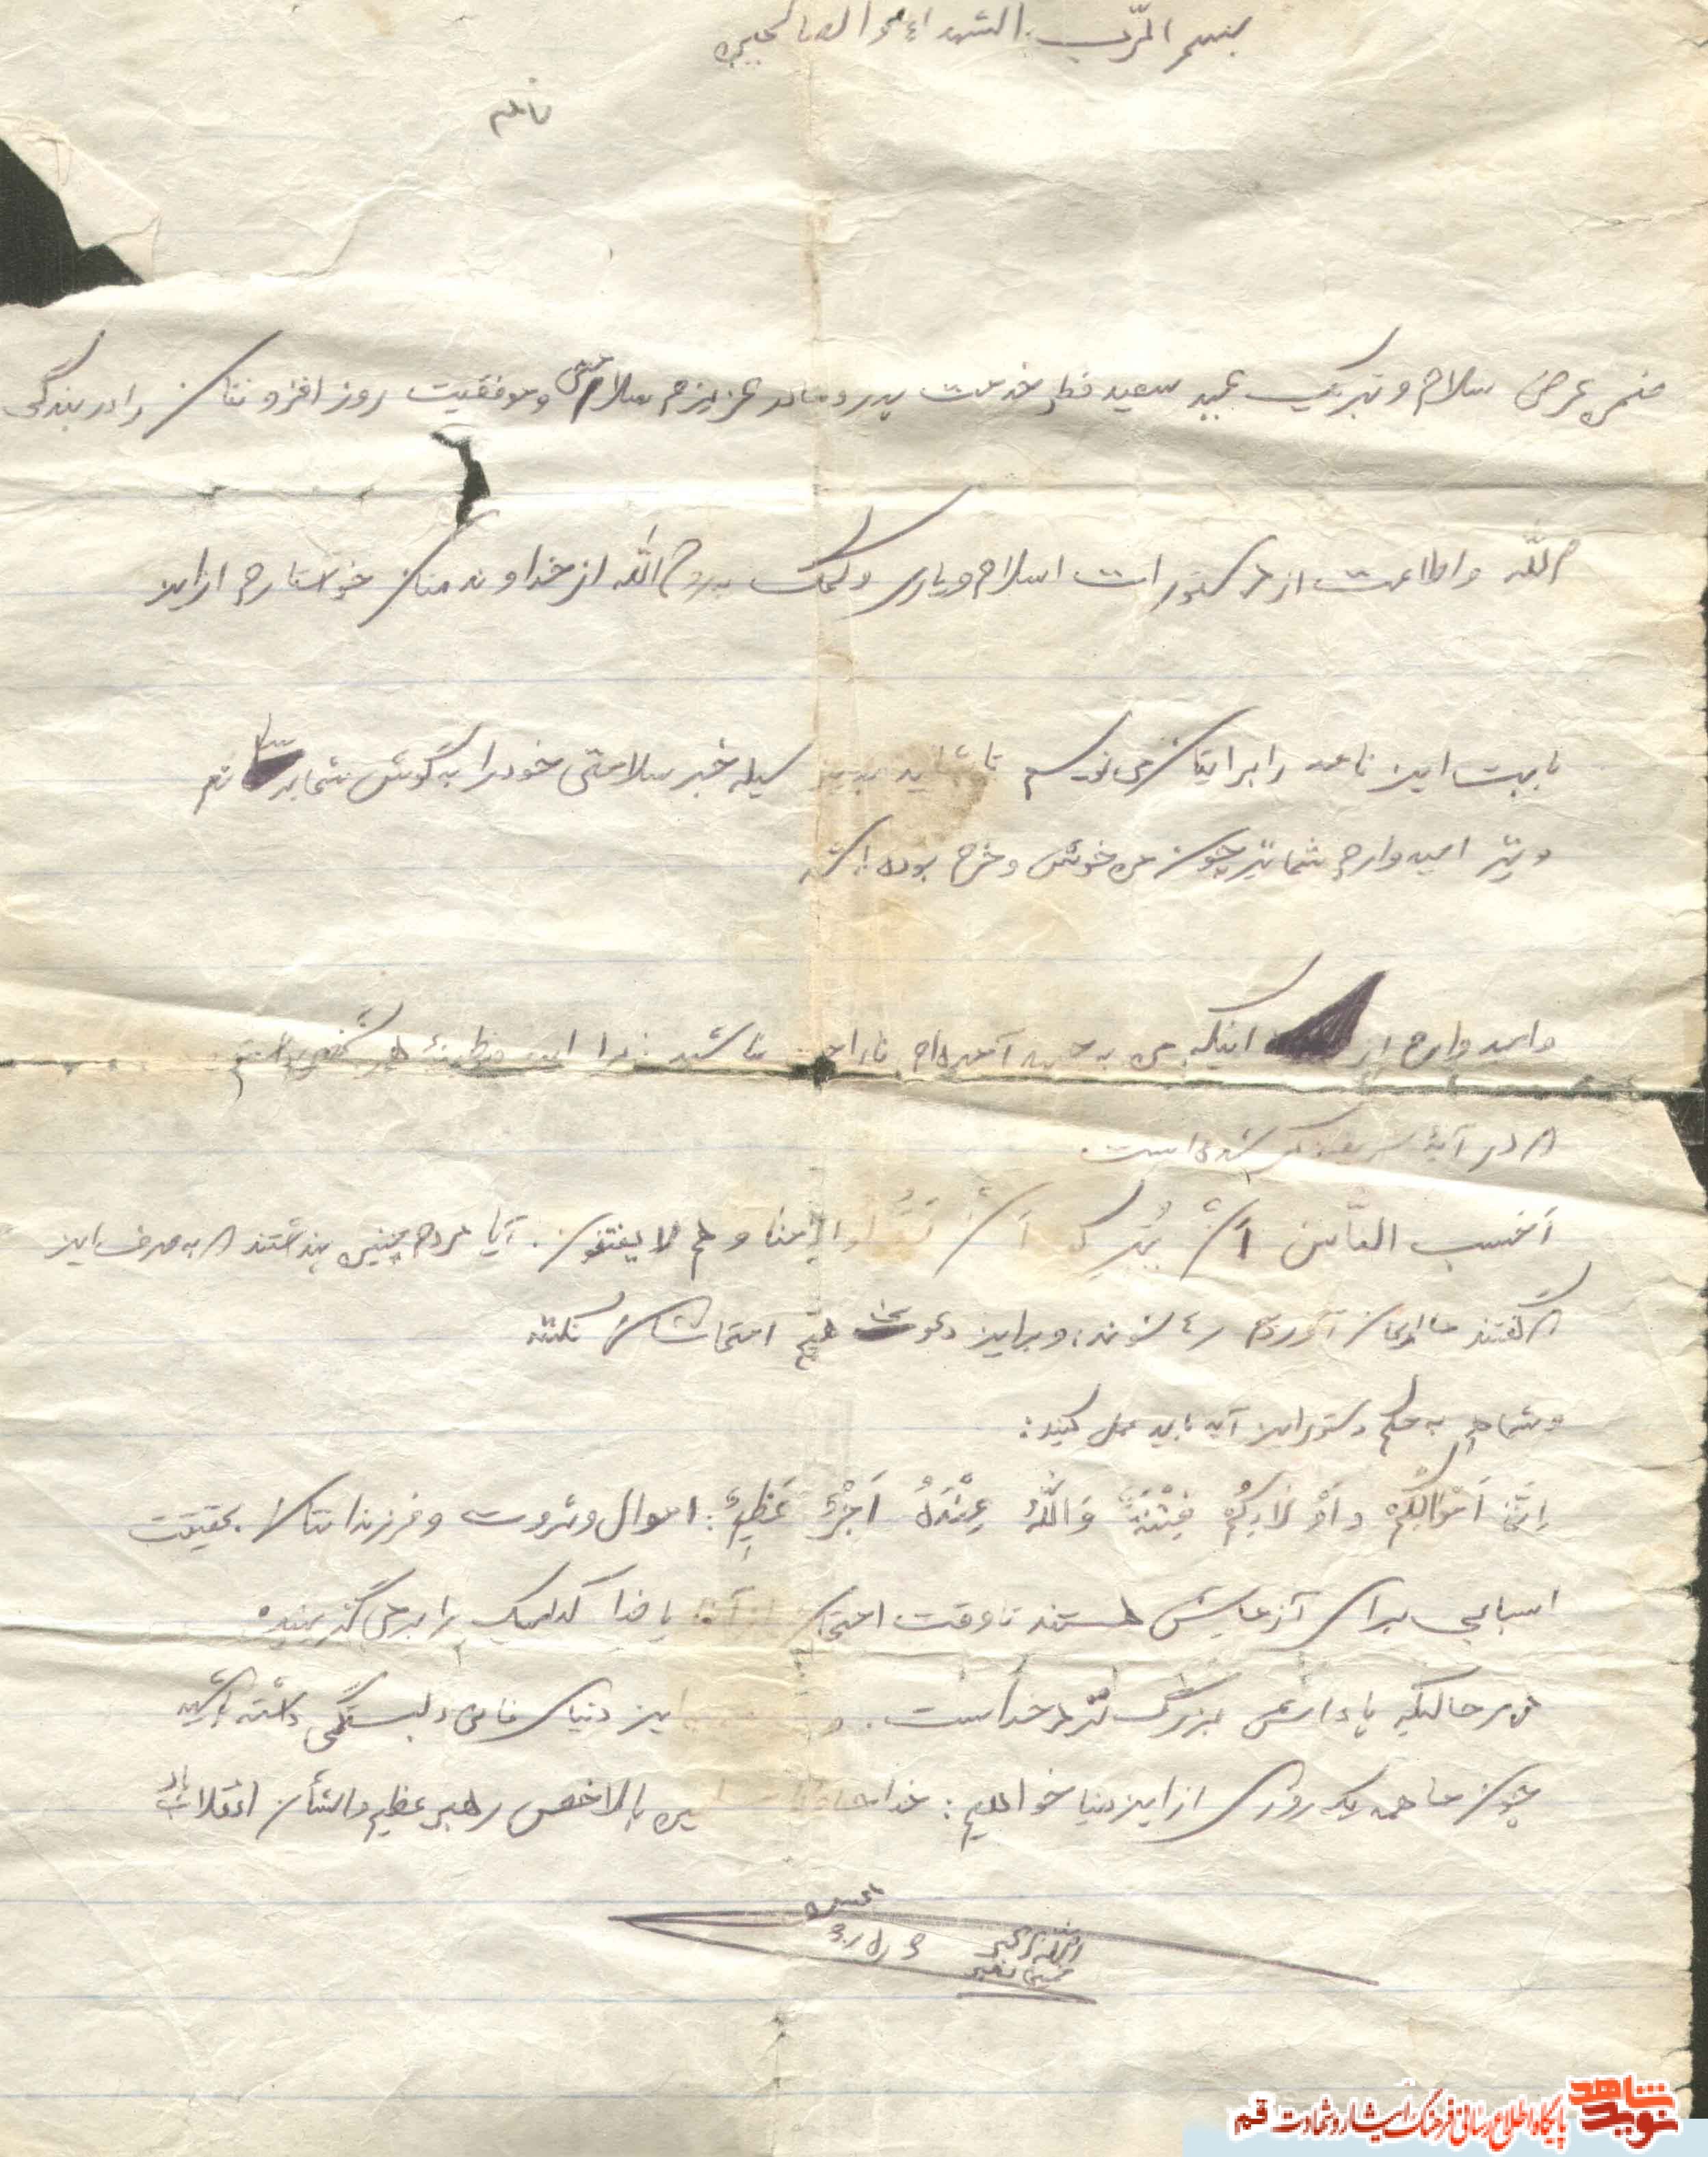 بسم الرّب الشهداء و الصالحین
نامه
ضمن عرض سلام و تبریک عید سعید فطر خدمت پدر و مادر عزیزم سلامتی و موفقیت روز افزونتان را در بندگی
الله و اطاعت از دستورات اسلام و یاری و کمک به روح الله از خداوند منان خواستارم از این
بابت این نامه را برایتان می نویسم تا شاید بدین وسیله خبر سلامتی خود را به گوش شما برسانم
و نیز امیدوارم شما نیز چون من خوش و خرم بوده باشید
و امیدوارم از اینکه من به جبهه آمده ام ناراحت نباشید زیرا این وظیفهٔ هر شخص است
که در آیهٔ شریفه ذکر شده است.
اَحَسِبَ النّاسُ اَنْ یُترکُوا اَنْ یَقُولوا امنا و هم لا یفتنون. آیا مردم چنین پنداشتند که به صرف این
که گفتند ما ایمان آورده رها شوند: و بر این دعوت هیچ امتحانشان نکنند
و شما هم به حکم دستور این آیه باید عمل کنید:
اِنَّمٰا اَمْوٰالُکُمْ وَ اَوْلٰادُکُمْ فِتْنَةٌ وَ اللّٰهُ عِنْدَهُ اَجْرٌ عَظیمٌ: اموال و ثروت و فرزندانتان بحقیقت
اسبابی برای آزمایش هستند تا وقت امتحان از آنها یا خدا کدامیک را برمی گزینید
در حالیکه پاداش بزرگ نزد خداست. و این دنیای فانی دلبستگی داشته باشید
چون ما همه یک روزی از این دنیا خواهیم: خداحافظ بالاخص رهبر عظیم الشأن انقلاب باد
نوید شاهد
پایگاه اطلاع رسانی فرهنگ ایثار و شهادت قم